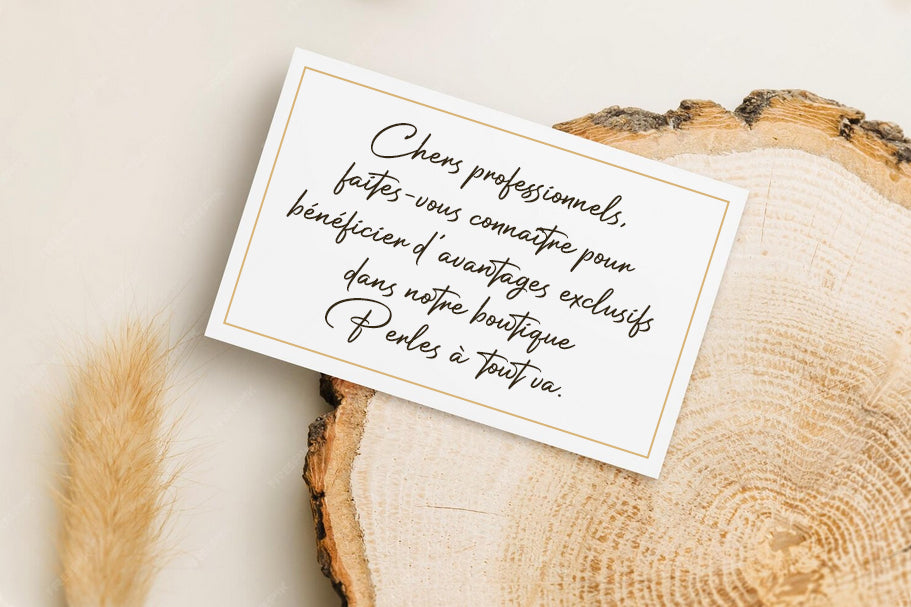 Chers professionnels,
faites-vous connaître pour
bénéficier d'avantages exclusifs
dans notre boutique
Perles à tout va.